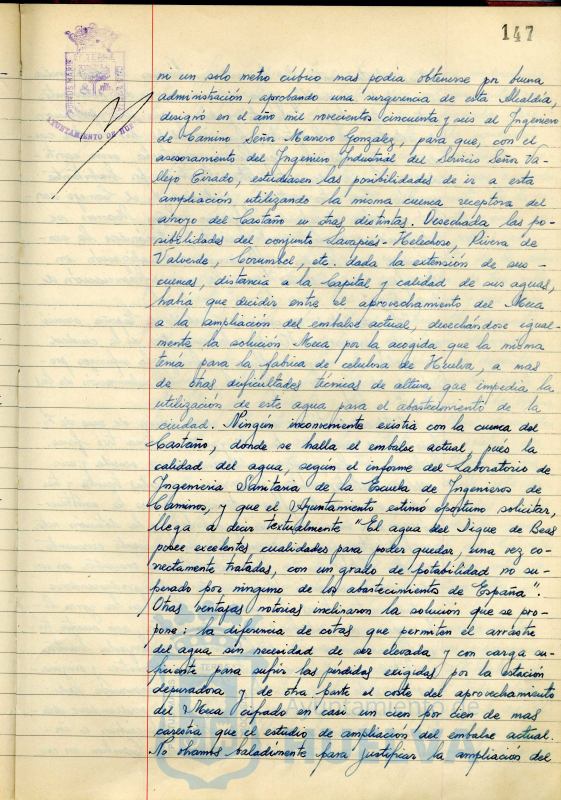 147
AYUNTAMIENTO DE HU
ni un solo metro cúbico mas podia obtenerse por buena
administración, aprobando una surgerencia de esta Alcaldia,
designó en el año mil novecientos cincuenta y seis al Ingeniero
de Camino Señor Marrero Gonzalez, para que, con el
asesoramiento del Ingeniero Industrial del Servicio Señor Va-
llejo Cirado, estudiasen las posibilidades de ir a esta
ampliación utilizando la misma cuenca receptora del
arroyo del Castaño u otras distintas. Desechada las po-
sibilidades del conjunto Lavapiés-Helechoso, Rivera de
Valverde, Corumbel, etc. dada la extensión de sus
cuencas, distancia a la Capital y calidad de sus aguas,
habia que decidir entre el aprovechamiento del Meca
a la ampliación del embalse actual, desechándose igual-
mente la solución Meca por la acogida que la misma
tenia para la fabrica de celulosa de Huelva, a mas
de otras dificultades técnicas de altura que impedia la
utilización de este agua para el abastecimiento de la
ciudad. Ningún inconveniente existia con la cuenca del
Castaño, donde se halla el embalse actual, pués la
calidad del agua, según el informe del Laboratorio de
Ingenieria Sanitaria de la Escuela de Ingenieros de
Caminos, y que el Ayuntamiento estimó oportuno solicitar,
llega a decir textualmente "El agua del Dique de Beas
posee excelentes cualidades para poder quedar, una vez co-
rrectamente tratadas, con un grado de potabilidad no su-
perado por ninguno de los abastecimientos de España".
Otras ventajas notorias inclinaron la solución que se pro-
pone: la diferencia de cotas que permiten el arrastre
del agua sin necesidad de ser elevada y con carga su-
ficiente para sufrir las pérdidas exigidas por la estación
depuradora y de otra parte el coste del aprovechamiento
del Meca cifrado en casi un cien por cien de mas
carestia que el estudio de ampliación del embalse actual.
No obamos baladimente para justificar la ampliación del
Ayuntamiento de